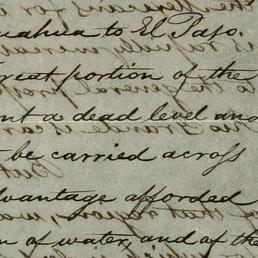 uahua to El Paso.
reat portion of the
nt a dead level and
t be carried across
dvantage afforded
n of water, and of the